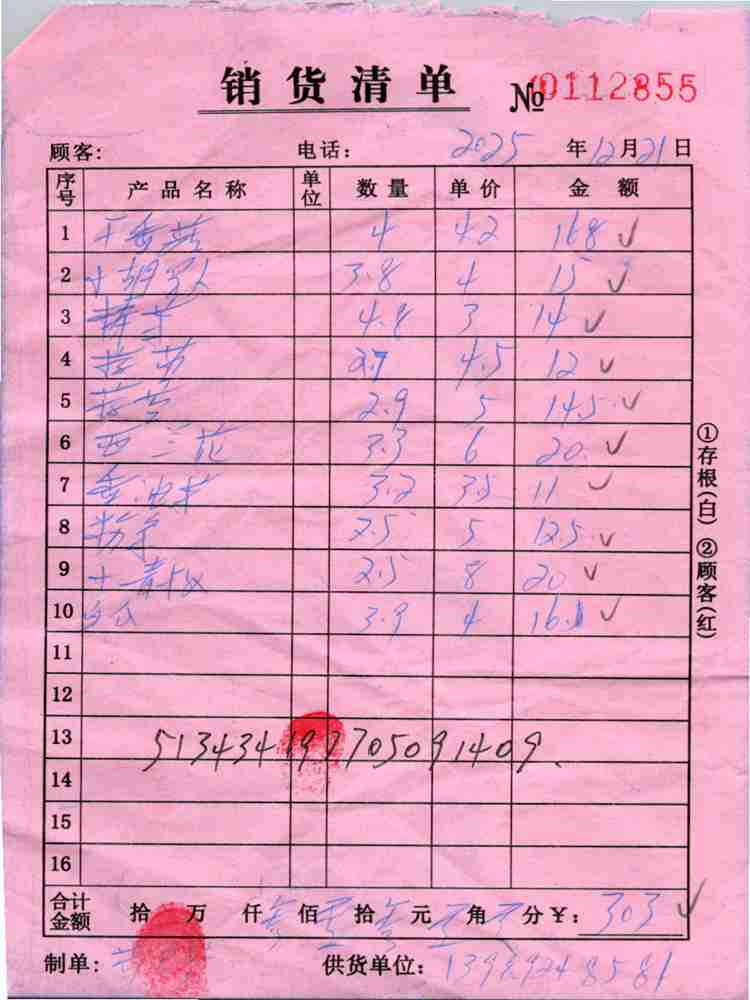 销货清单 № 0112855
顾客: 电话: 2025年12月21日
序号 产品名称 单位 数量 单价 金额
1 干香菇 4 42 168 ✓
2 胡 3.8 4 15 ✓
3 4.8 3 14 ✓
4 2.7 4.5 12 ✓
5 2.9 5 14.5 ✓
6 西兰花 3.3 6 20 ✓
7 香油 3.2 3.5 11 ✓
8 2.5 5 12.5 ✓
9 2.5 8 20 ✓
10 3.9 4 16 ✓
11
12
13 513434197705091409
14
15
16
合计金额 拾 万 仟 叁佰 零拾 叁元 角 分 ¥: 303 ✓
制单: 供货单位: 13989248581
①存根(白) ②顾客(红)